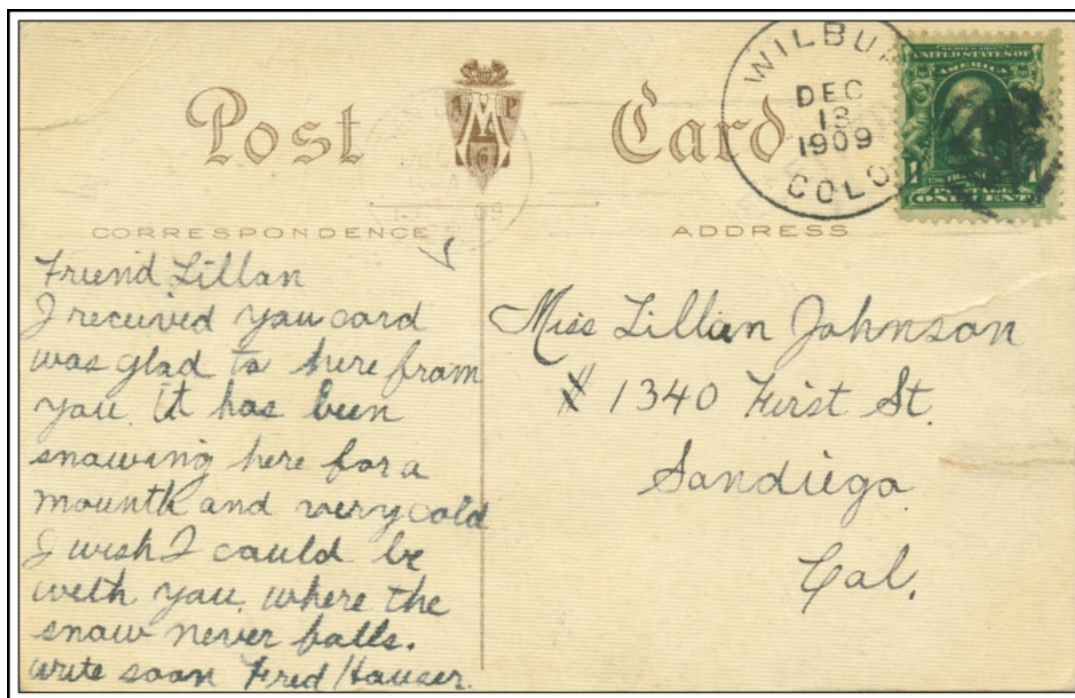 Post Card
CORRESPONDENCE
ADDRESS
WILBUR
DEC
13
1909
COLO
UNITED STATES OF
AMERICA
1
1
POSTAGE
ONE CENT
A M P
Friend Lillan
I received you card
was glad to here from
you. It has been
snowing here for a
mounth and very cold
I wish I could be
with you. where the
snow never falls.
write soon Fred Hauser.
Miss Lillian Johnson
# 1340 First St.
Sandiego
Cal.